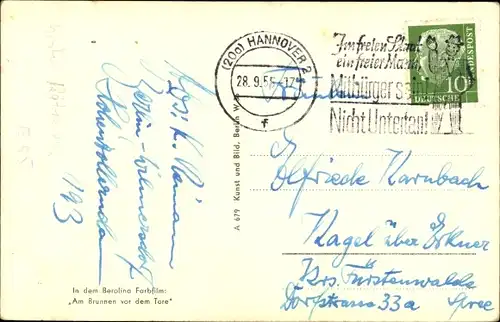 (20a) HANNOVER 2
28. 9. 56. -17
f
Im freien Staat
ein freier Mann
Mitbürger sein
Nicht Untertan!
DEUTSCHE BUNDESPOST
10
Elfriede Karnbach
Kagel über Erkner
Krs. Fürstenwalde
Dorfstrasse 33a Spree
Abs. K.
Berlin-Wilmersdorf
Hohenzollerndamm
193
A 679 Kunst und Bild, Berlin W
In dem Berolina Farbfilm:
"Am Brunnen vor dem Tore"